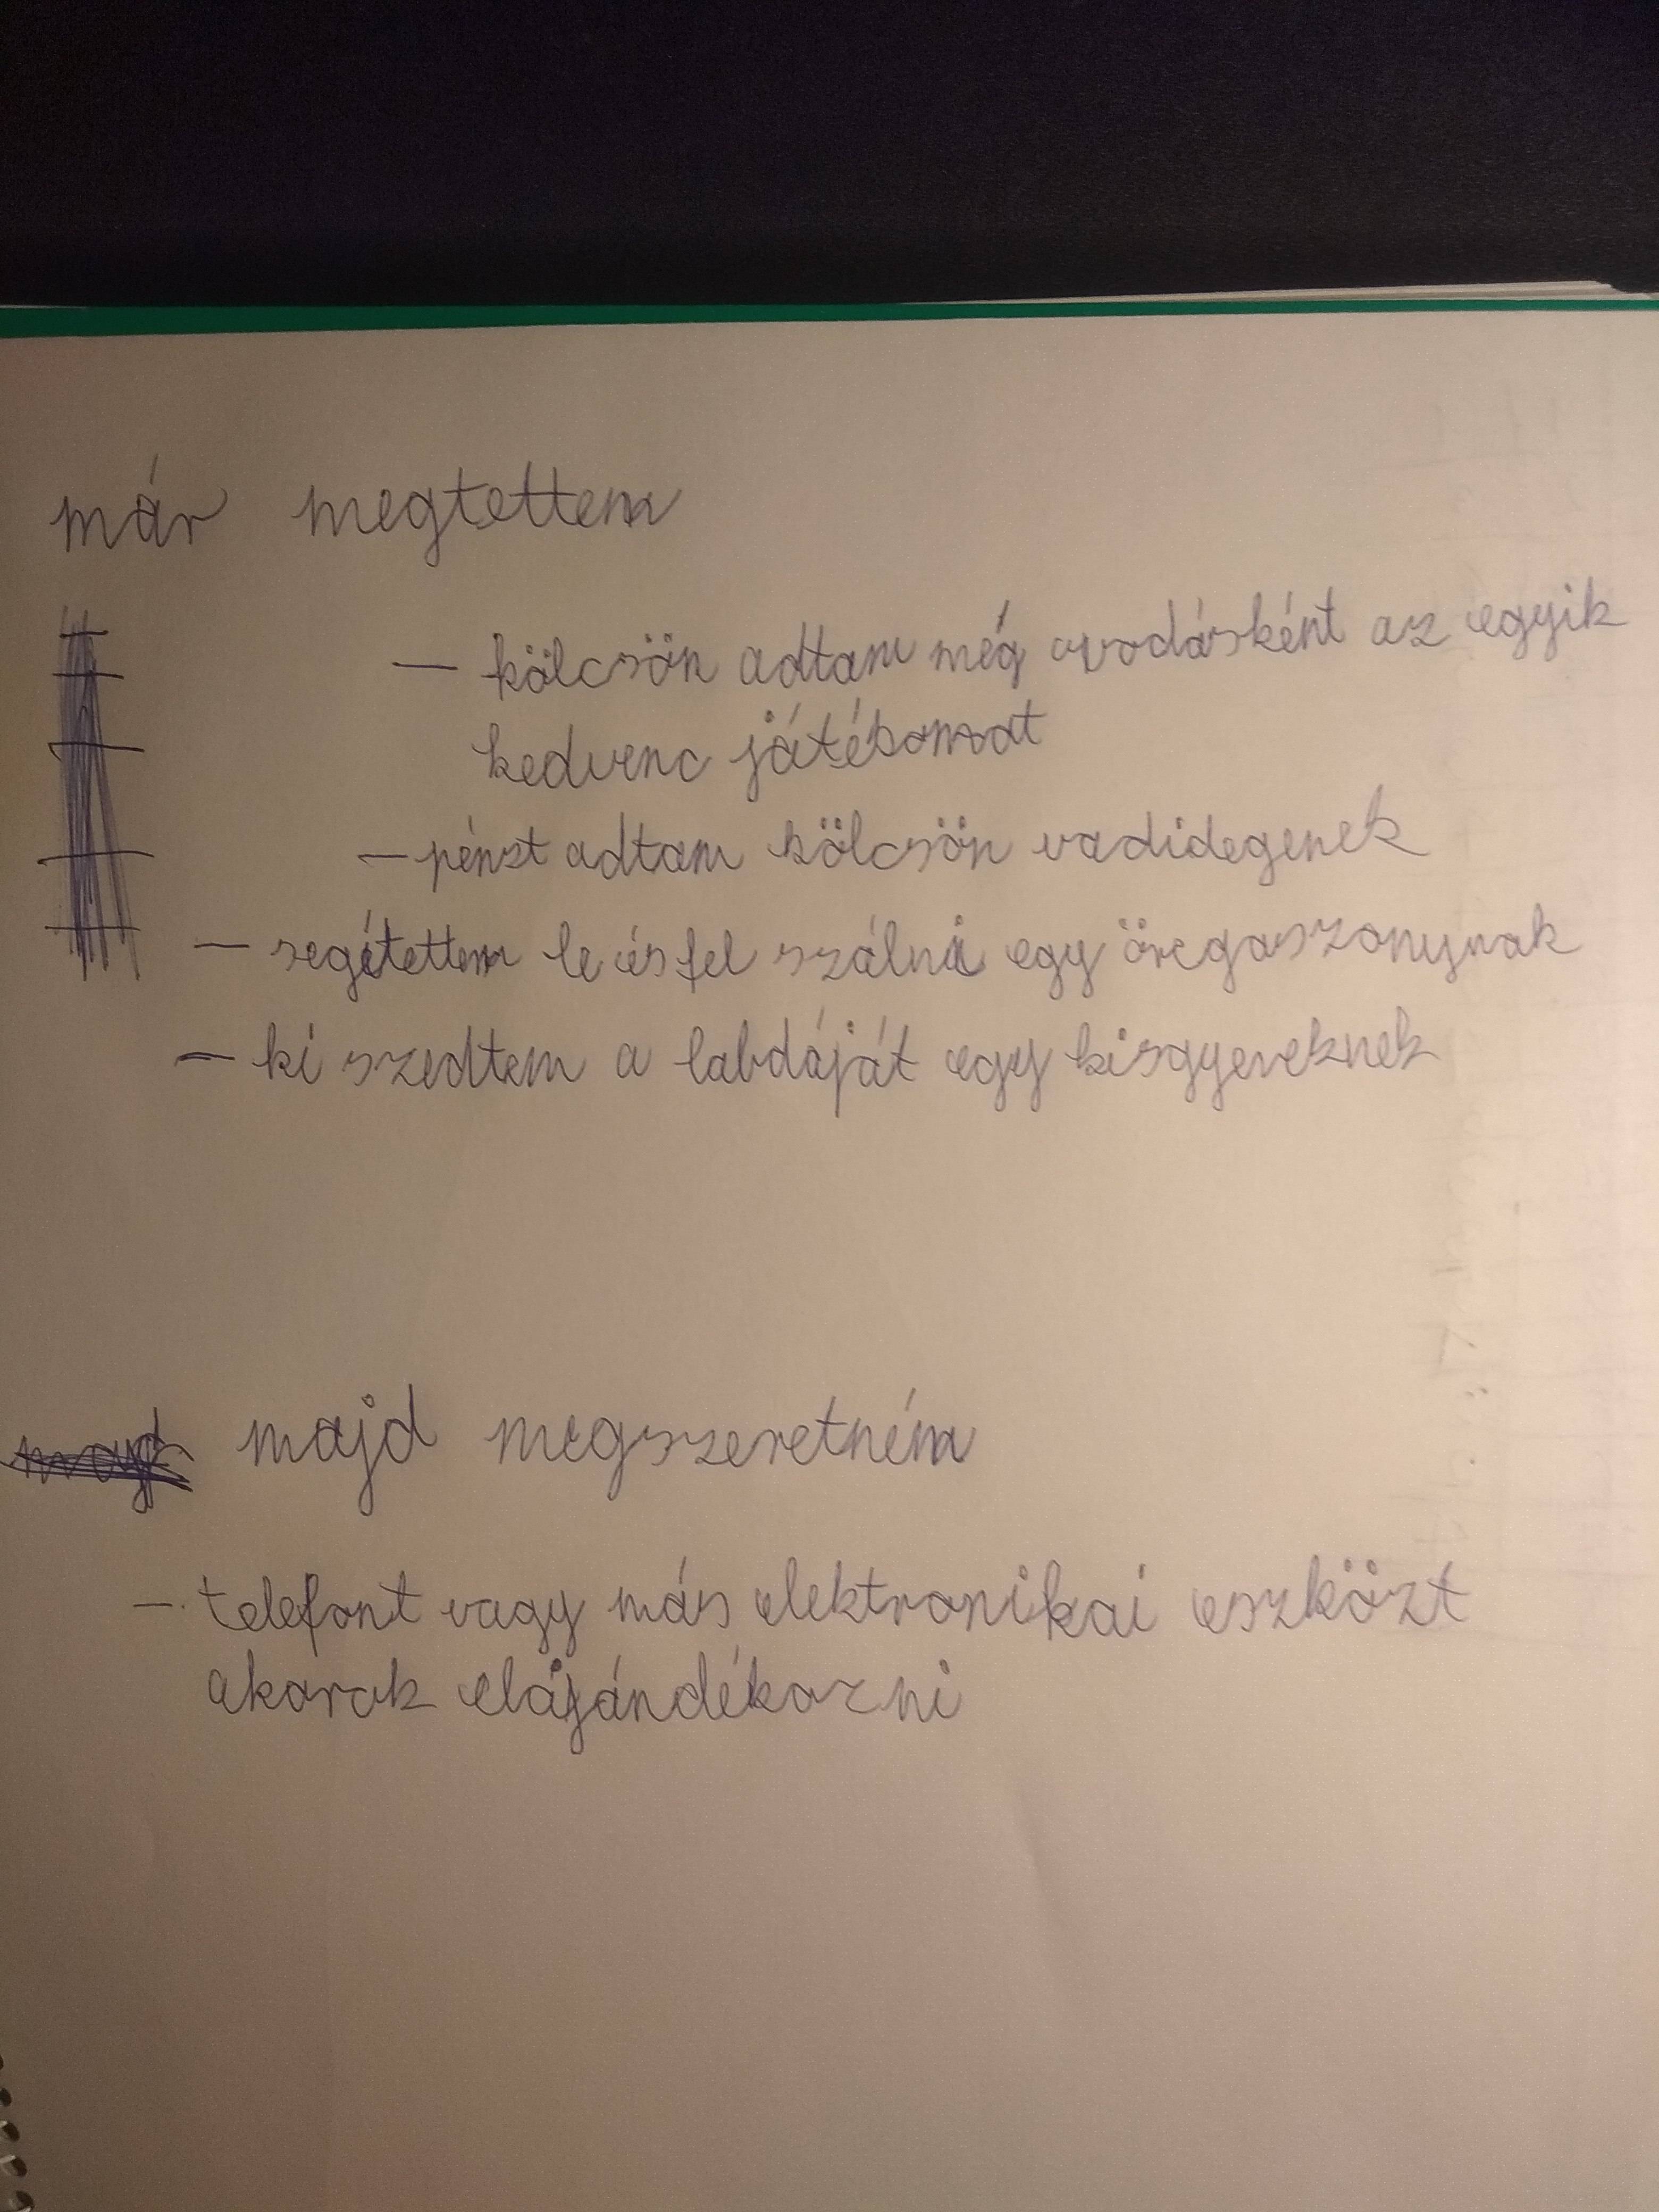 már megtettem
— kölcsön adtam még ovodásként az egyik
kedvenc játékomat
— pénzt adtam kölcsön vadidegenek
— segítettem le és fel szálni egy öregaszonynak
— ki szedtem a labdáját egy kisgyereknek
majd megszeretném
— telefont vagy más elektronikai eszközt
akarok elájándékozni